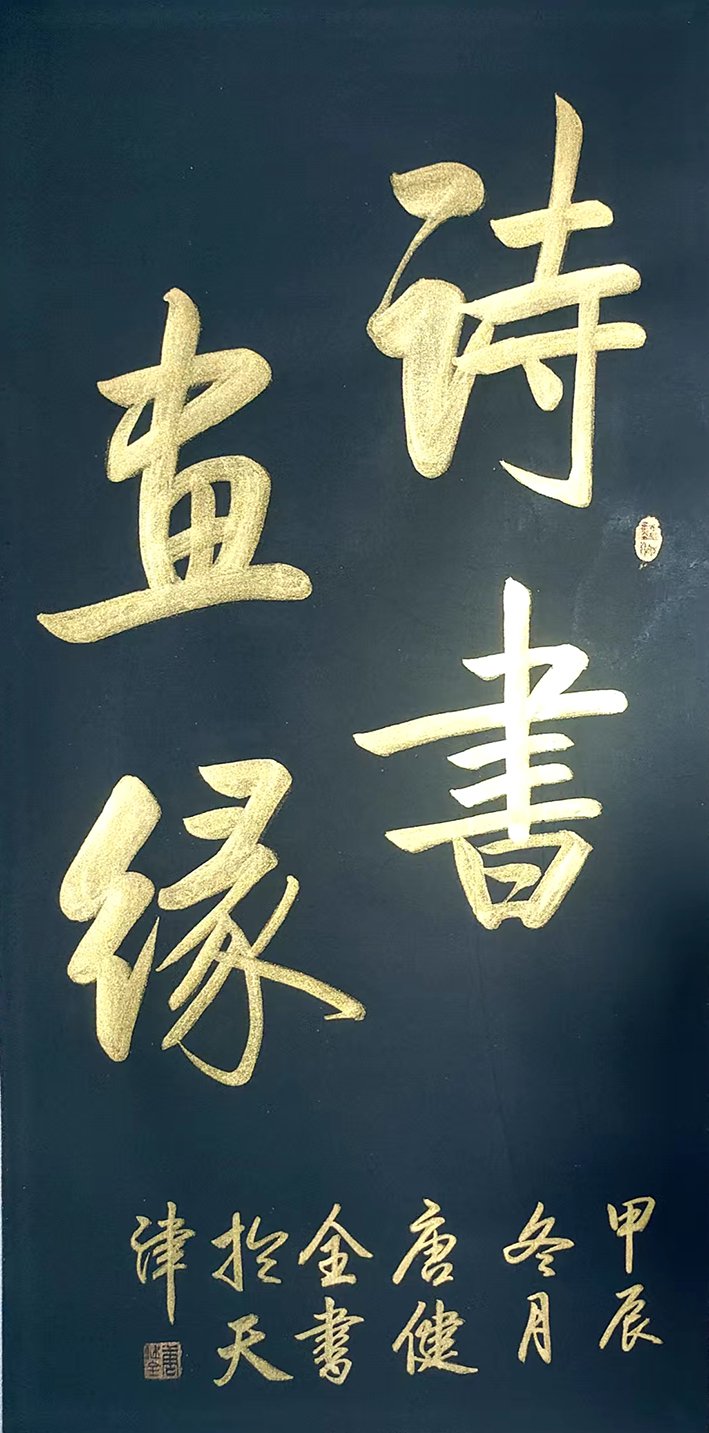 诗書
画缘
甲辰
冬月
唐健
全書
於天
津